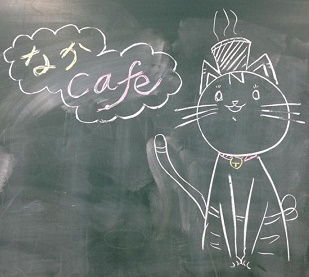 なか
cafe